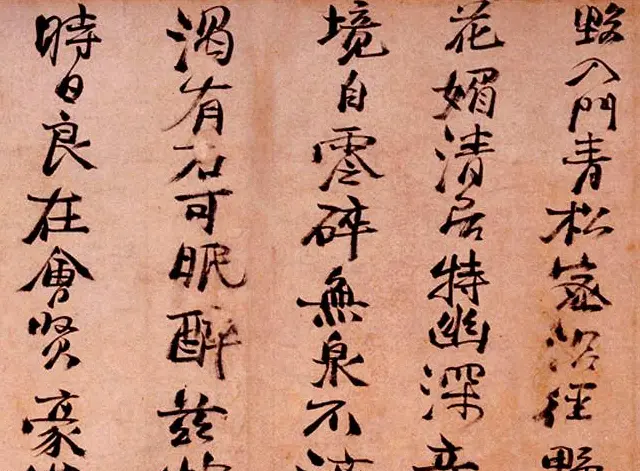 入門青松沿徑野
花媚清居特幽深
境自零碎無泉不
渴有石可眠醉茲
時日良在會賢豪